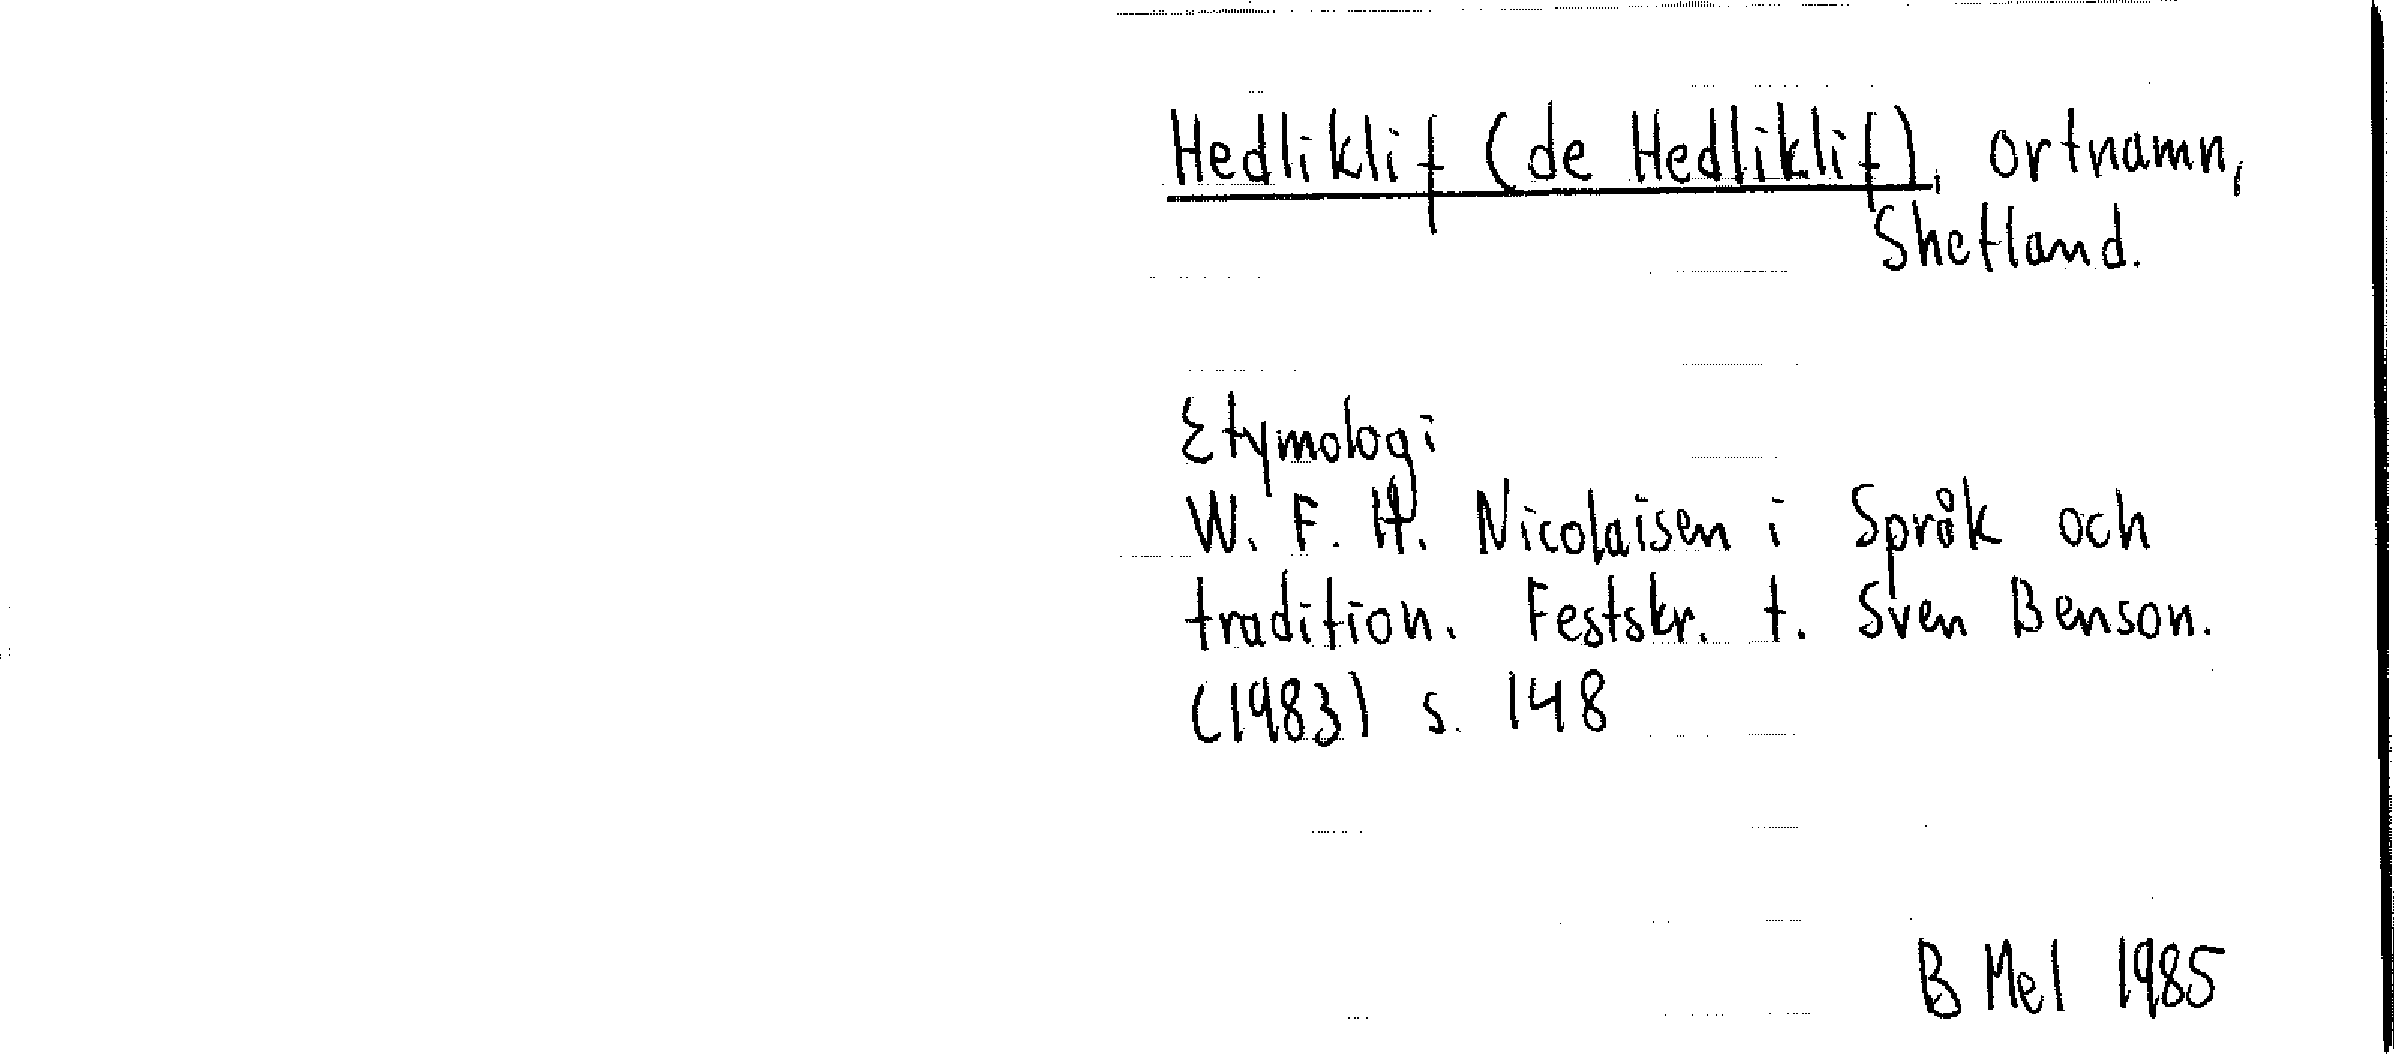 Hedliklif (de Hedliklif), ortnamn,
Shetland.
Etymologi
W. F. H. Nicolaisen i Språk och
tradition. Festskr. t. Sven Benson.
(1983) s. 148
B Mel 1985